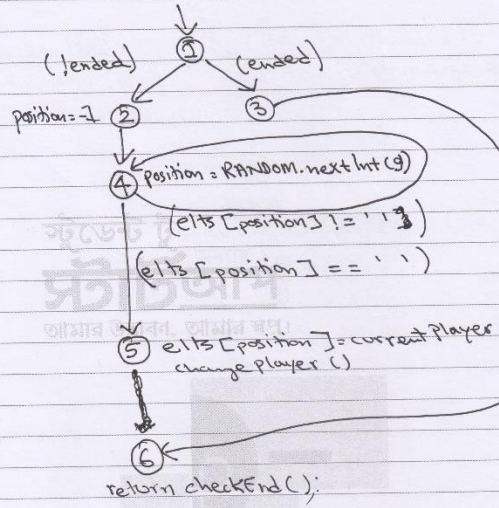 1
(!ended)
(ended)
position=-1
2
3
4
position = RANDOM.nextInt(9)
(elts [position] != ' ')
(elts [position] == ' ')
স্টুডেন্ট টু
স্টার্টআপ
আমার উদ্ভাবন, আমার স্বপ্ন।
5
elts [position] = current Player
change Player ()
6
return checkEnd();